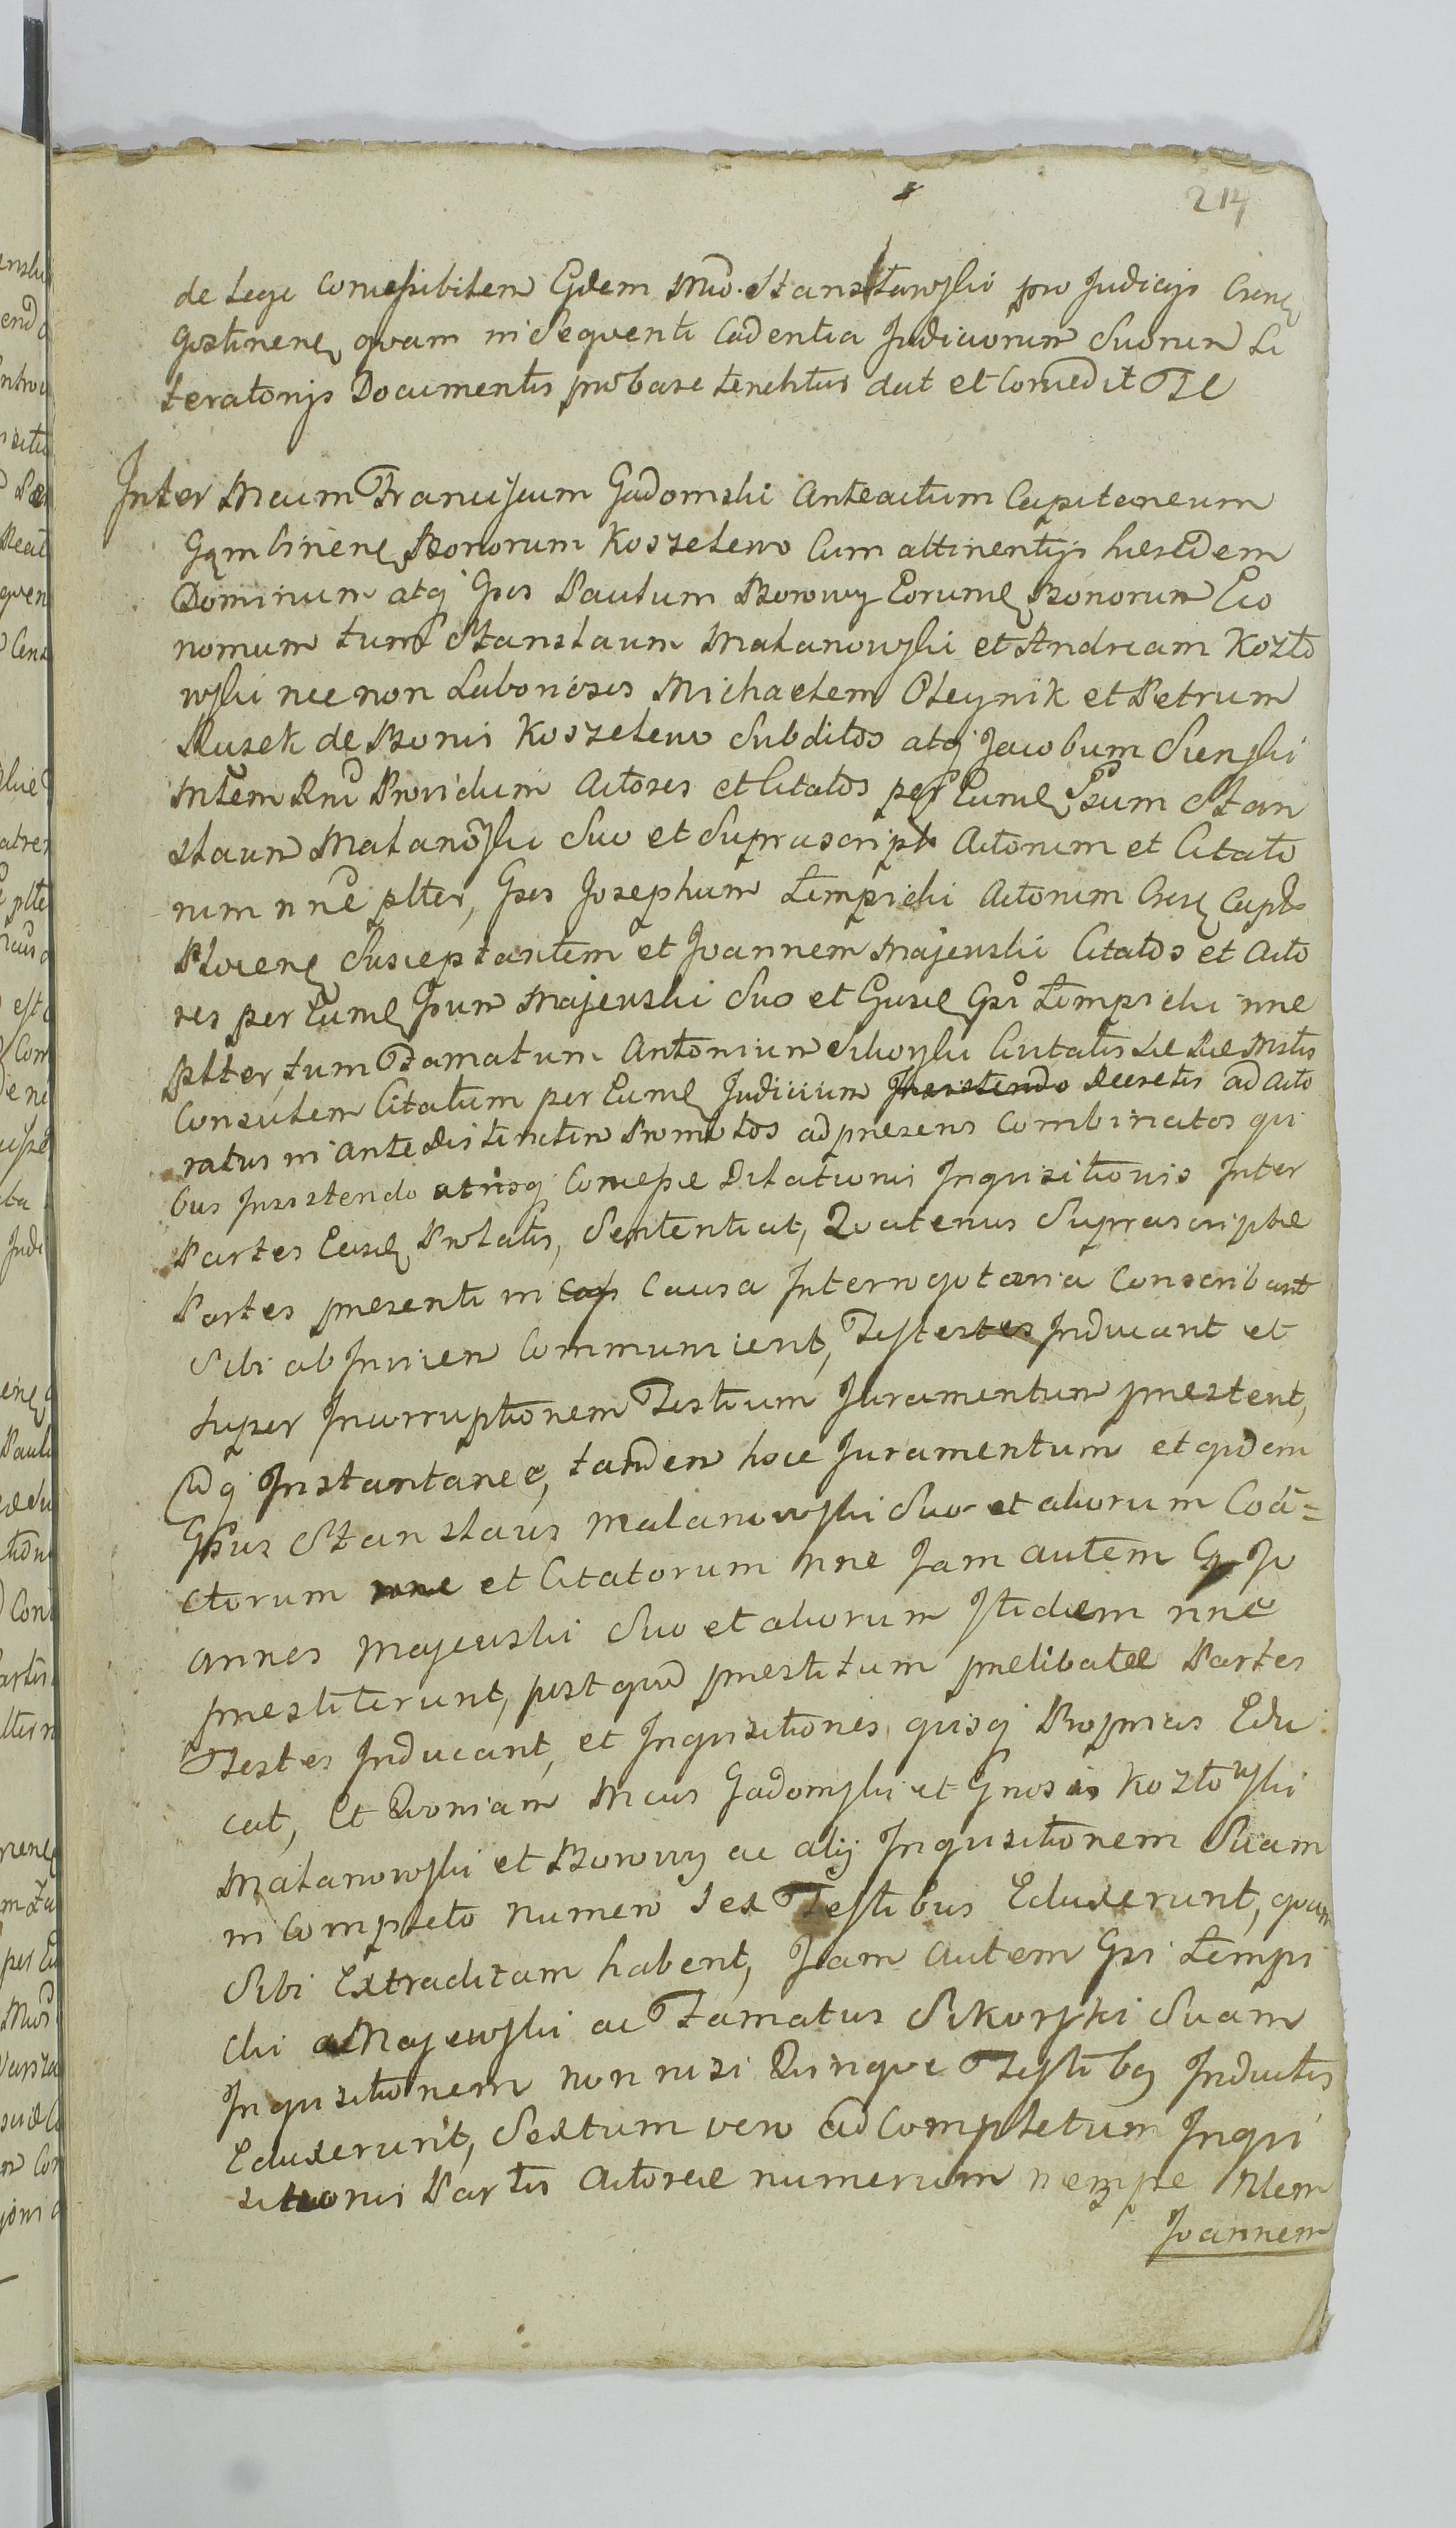 214
de Lege concessibilem Eidem Mco. Stanislawski pro Judicijs Csrns
Gostinens, quam in Sequenti Cadentia Judiciorum Suorum Li
teratorijs Documentis probare tenebitur dat et Concedit
Inter Mcum Franciscum Gadomski Anteactum Capitaneum
Gąmbinens, Bonorum Koszelewo Cum attinentijs hæredem
Dominum atq Gsos Paulum Borowy Eorumd Bonorum Eco
nomum tum Stanslaum Malanowski et Andream Kozło
wski nec non Laboriosos Michaelem Oleynik et Petrum
Rusek de Bonis Koszelewo Subditos atq Jacobum
Providum Actores et Citatos per Eumd Gsum Stan
slaum Malanowski Suo et Suprascript Actorum et Citato
rum nne plter, Gsos Josephum Lempicki Actorum Csrs Capt
Plocens Susceptantem et Joannem Majewski Citatos et Acto
res per Eumd Gsum Majewski Suo et Gsi Lempicki nne
plter tum Famatum Antonium Sikorski Civitatis
Consulem Citatum per Eumd Judicium Insistendo Decretis ad Acto
ratus in Antedistinctim Promotos ad præsens Combinatos qui
bus Insistendo atq Concessæ Dilationis Inquisitionis Inter
Partes Easd Prolatis, Sententiat, Quatenus Suprascriptæ
Partes præsenti in Causa Interrogatoria Conscribant
Sibi ab Invicem Communicent, Testes Inducant et
super Incorruptionem Testium Juramentum præstent,
Idq Instantanee, tandem hoce Juramentum et quidem
Gsus Stanslaus Malanowski Suo et aliorum Coa=
ctorum nne et Citatorum nne Jam autem G Jo
annes Majewski Suo et aliorum Itidem nne
præstiterunt, post quod præstitum prælibatæ Partes
Testes Inducant, et Inquisitiones quisq Proprias Edu
cat, Et Quoniam Mcus Gadomski et Gnosis Kozłowski
Malanowski et Borowy ac alij Inquisitionem Suam
in Completo numero Sex Testibus Eduxerunt, quam
Sibi Extraditam habent, Jam Autem Gsi Lempi
cki Majewski ac Famatus Sikorski Suam
Inquisitionem non nisi Quinque Testibq Inductis
Eduxerunt, Sextum vero ad Completum Inqui
sitionis Partis Actoreæ numerum nempe Nlem
Joannem